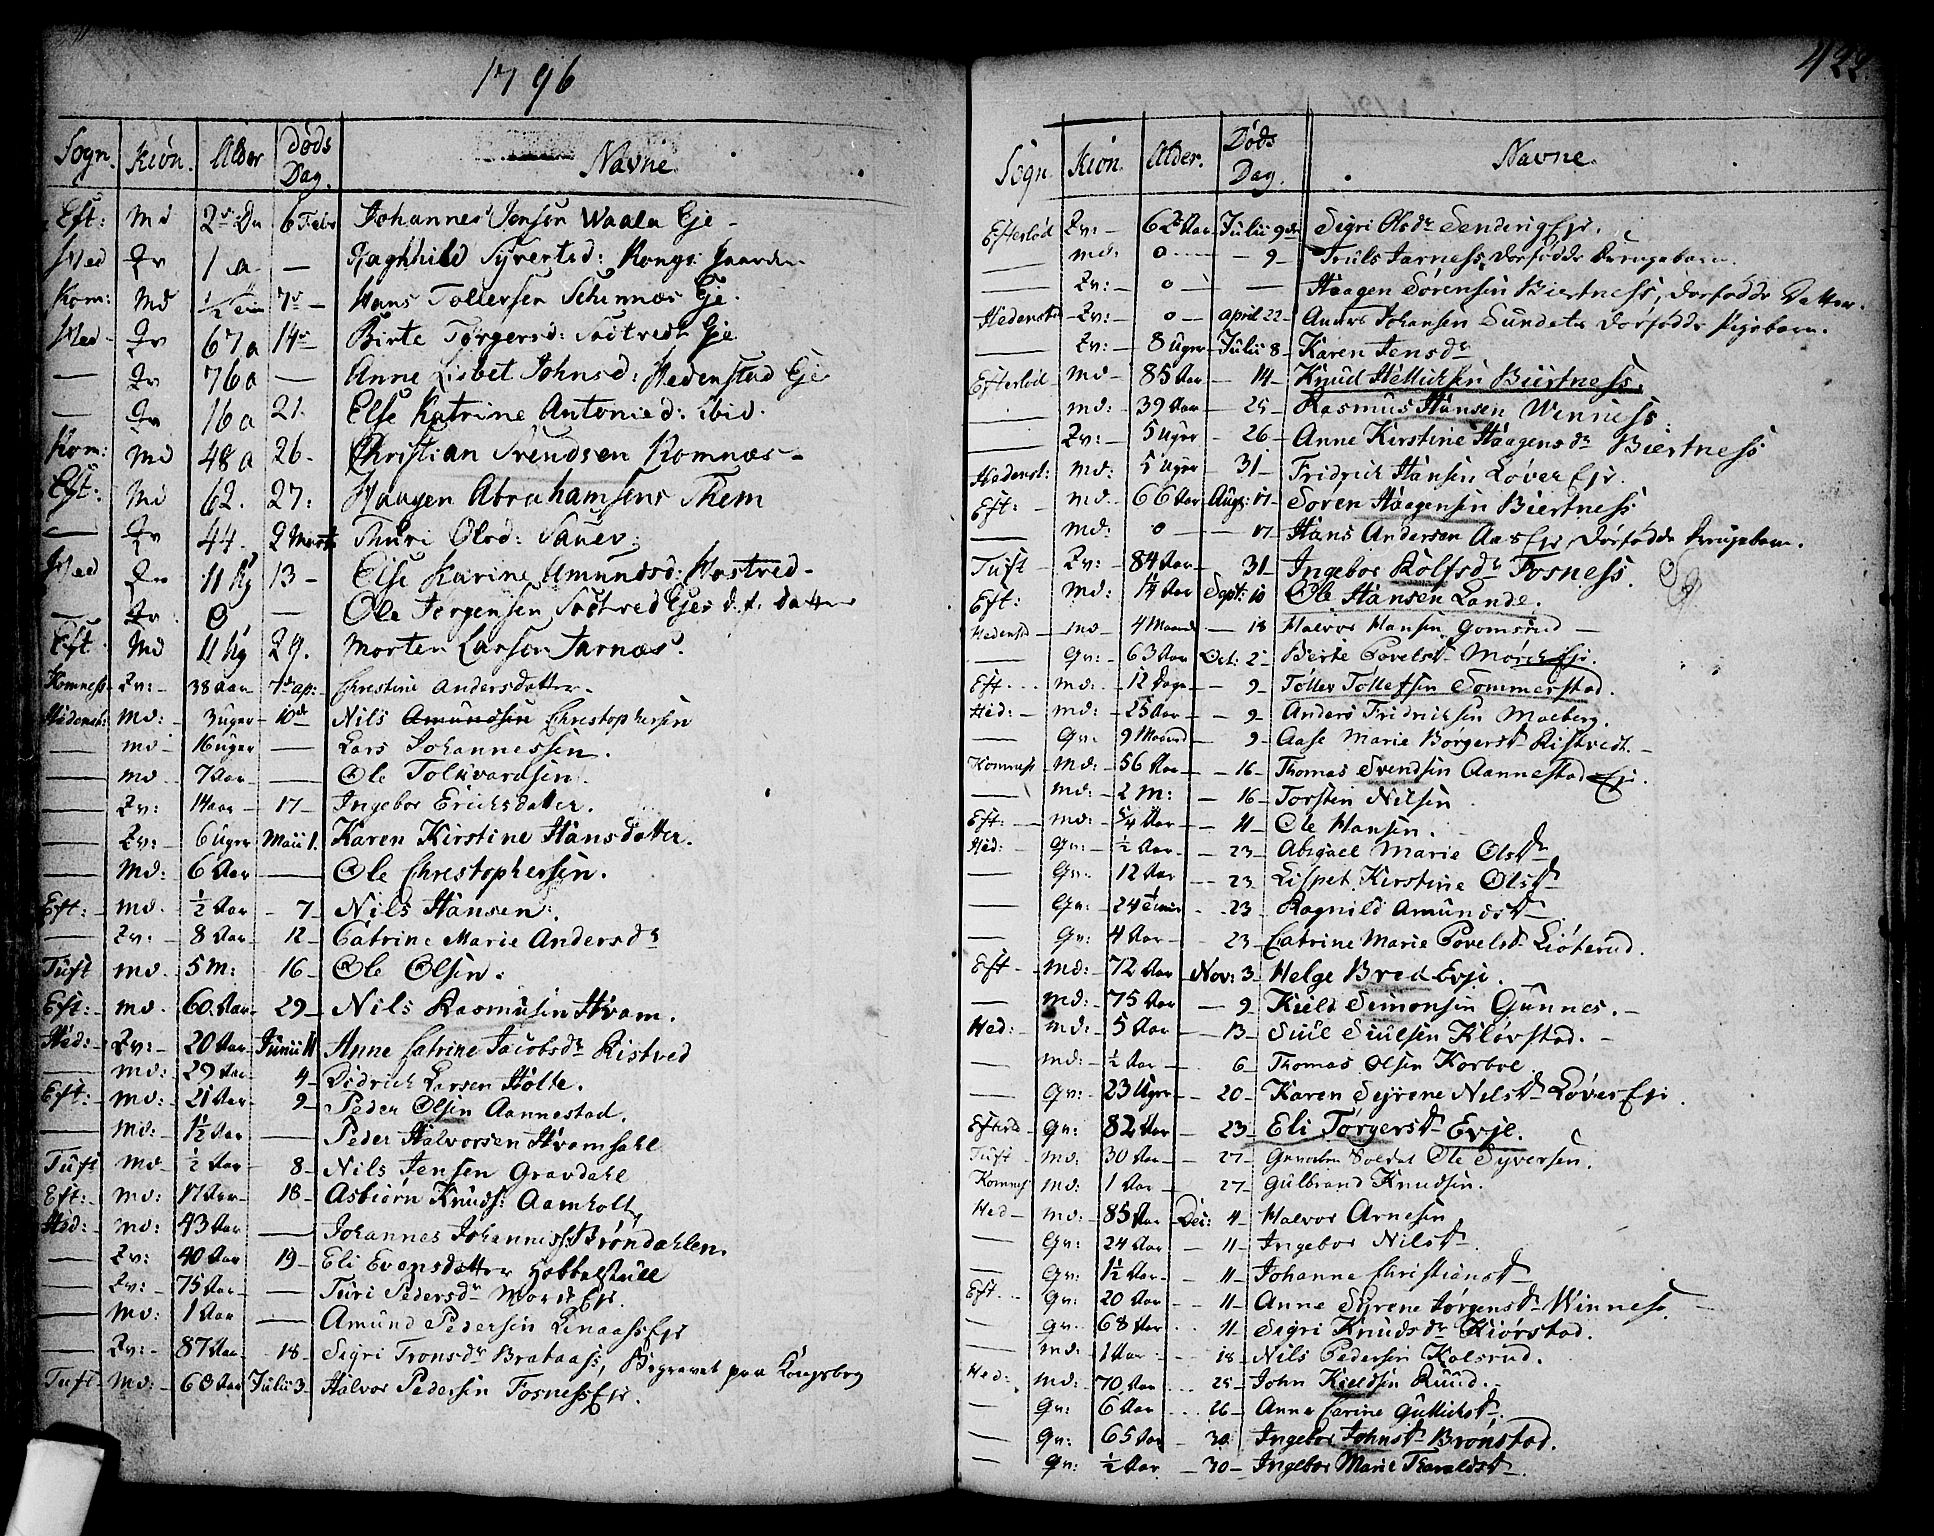 1796
422
Sogn. Kiøn. Alder Døds Dag. Navne
Eft: Md 6 Febr Johannes Jensen Waala Eje
Hed Qv 1 a — Raghhild Syvertsd: Kongs gaarden
Kom: Md Hans Tollersen Schinnæs Eje.
Hed Qv 67 a 14 Birte Torgersd: Eje
— Qv 76 a — Anne Lisbet Johnsd: Hedenstad Eje
— Qv 16 a 21. Else Katrine Antonied: ibid.
Kom: Md 48 a 26 Christian Svendsen Komnæs
Eft: Md 62. 27: Haagen Abrahamsens Them
— Qv 44. 2 Marts Thuri Olsd: Sauev:
Hed Qv 11 Ug 13 Else Karine Amundsd: Hostved
— Qv 0 — Ole Jørgensen Ejes d.f. datter
Eft Md 11 Ug 29. Morten Larson Jarnæs.
Komness Qv: 38 aar 7de ap: Chrestine Andersdatter
Hedenst: Md: 3 uger 10de Nils Christophersen
— md 16 uger — Lars Johannessen.
— md 7 Aar — Ole Tolkvardsen.
— Qv: 1 Aar 17 Ingebor Erichsdatter.
— Qv: 6 Uger Maii 1. Karen Kirstine Hansdatter.
— Md: 6 Aar — Ole Chrestophersen.
Eft: md. ½ Aar 7 Nils Hansen.
— Qv: 8 Aar 12 Catrine Marie Andersdr
Tuft md. 5 M: 16 Ole Olsen.
Eft: md. 60 Aar 29 Nils Rasmusen Hvam.
Hed: Qv: 20 Aar Junii 11 Anne Catrine Jacobsdr Ristved
— md: 29 Aar 4 Didrich Larsen Holte.
Eft: md: 21 Aar 9 Peder Olsen Aannestad.
— md: 1½ Aar — Peder Halvorsen Hvamsahl
Tuft md ½ Aar 8 Nils Jensen Gravdahl
Eft: md: 17 Aar 18 Asbiørn Knuds: Aamholt
Hed: md: 43 Aar — Johannes Johanness: Brøndahlen.
— Qv: 40 Aar 19 Eli Evensdatter Hobbelstull
— Qv: 75 Aar — Turi Pedersdr Morch Eje.
— md: 1 Aar — Amund Pedersen Lenaass Eje
— Qv: 87 Aar 18 Sigri Tronsdr Brataass, Begravet paa Kongsberg
Tuft md: 68 Aar Julii 3 Halvor Pedersen Fosness Eje.
Sogn Kiøn. Alder. Døds Dag. Navne.
Efteslød Qv: 62 Aar Julii 9de Sigri Olsdr Senderig Eje.
— md: 0 9 Truls Jarness Dødfødde Drengebarn.
— Qv: 0 — Haagen Sørensen Biertness, Dødfødde Datter.
Hedenstd Qv: 0 april 22 Anders Johansen Sundets Dødfødde Pigebarn.
— Qv: 8 uger Julii 8 Karen Jensdr
Efteslod md 85 Aar 14 Knud Hellichsen Biertness.
— md: 39 Aar 25 Rasmus Hansen Winness.
— Qv: 5 Uger 26 Anne Kirstine Haagensdr Biertness
Hedenst: md: 5 Uger 31 Fridrich Hansen Løver Eje.
Eft: md: 66 Aar Aug: 17 Søren Haagensen Biertness
— md: 0 17 Hans Andersen Aas Eje Dødfødde Drengebarn.
Tuft Qv: 84 Aar 31 Ingebor Rolfsdr Fosness.
Eft: md: 14 Aar Sept: 10 Ole Hansen Lande.
Hedenstd md 4 Maand 18 Halvor Hansen Gomsrud
— Qv: 63 Aar Oct: 2 Berte Povelsdr Mørch Eje.
Eft md: 12 Dage 9 Toller Tollefsen Sommerstad.
Hed: md: 25 Aar 9 Anders Fridrichsen Moeberg.
— Qv: 9 Maand 9 Aase Marie Børgersdr Ristvedt.
Komness Md: 56 Aar 16 Thomas Svendsen Aannestad Eje.
— md: 2 M: 16 Torsten Nilsen
Eft: md: 5/4 Aar 11 Ole Hansen.
Hed: Qv: ½ Aar 23 Abigael Marie Olsdr
— Qv: 12 Aar 23 Lispet Kirstine Olsdr
— Qv: 24 23 Ragnild Amundsdr
— Qv: 4 Aar 23 Catrine Marie Povelsdr Liøterud.
Eft md: 72 Aar Nov: 3 Helge Bred Evje.
— md: 75 Aar 9 Kield Simonsen Gunnes.
Hed: md: 5 Aar 13 Siul Siulsen Kløvstad.
— md: ½ Aar 6 Thomas Olsen Korboe
— Qv: 23 Uger 20 Karen Syrene Nilsdr Løver Eje
Eftesld Qv: 82 Aar 23 Eli Torgersdr Evje.
Tuft md: 30 Aar 27 Soldat Ole Syversen.
Komnes md: 1 Aar 27 Gulbrand Knudsen.
Hed md: 85 Aar Dec: 4 Halvor Arnesen
— Qv: 24 Aar 11 Ingebor Nilsdr
— Qv: 1½ Aar 11 Johanne Christiansdr
Eft Qv: 20 Aar 11 Anne Syrene Jørgensdr Winness.
— Qv: 68 Aar 11 Sigri Knudsdr Kiørstad.
— md: 1 Aar 18 Nils Pedersen Kolsrud.
Hed: md: 70 Aar 25 John Kieldsen Ruud.
— Qv: 6 Aar 26 Anne Carine Gullichsdr.
— Qv: 65 Aar 30 Ingebor Johnsdr Brønstad.
— Qv: ½ Aar 30 Ingebor Marie Tharaldsdr.